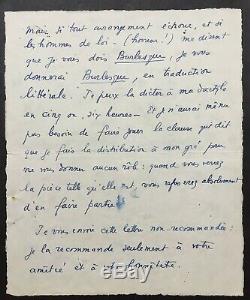 mais si tout arrangement échoue, et si
les hommes de loi – (horreur!) me disent
que je vous dois Burlesque, je vous
donnerai Burlesque, en traduction
littérale. Je peux la dicter à ma dactylo
en cinq ou six heures – Et je n'aurai même
pas besoin de faire jouer la clause qui dit
que je fais la distribution à mon gré pour
ne vous donner aucun rôle: quand vous verrez
la pièce telle qu'elle est, vous refuserez absolument
d'en faire partie
Je vous envoie cette lettre non recommandée:
je la recommande seulement à votre
amitié et à votre honnêteté.